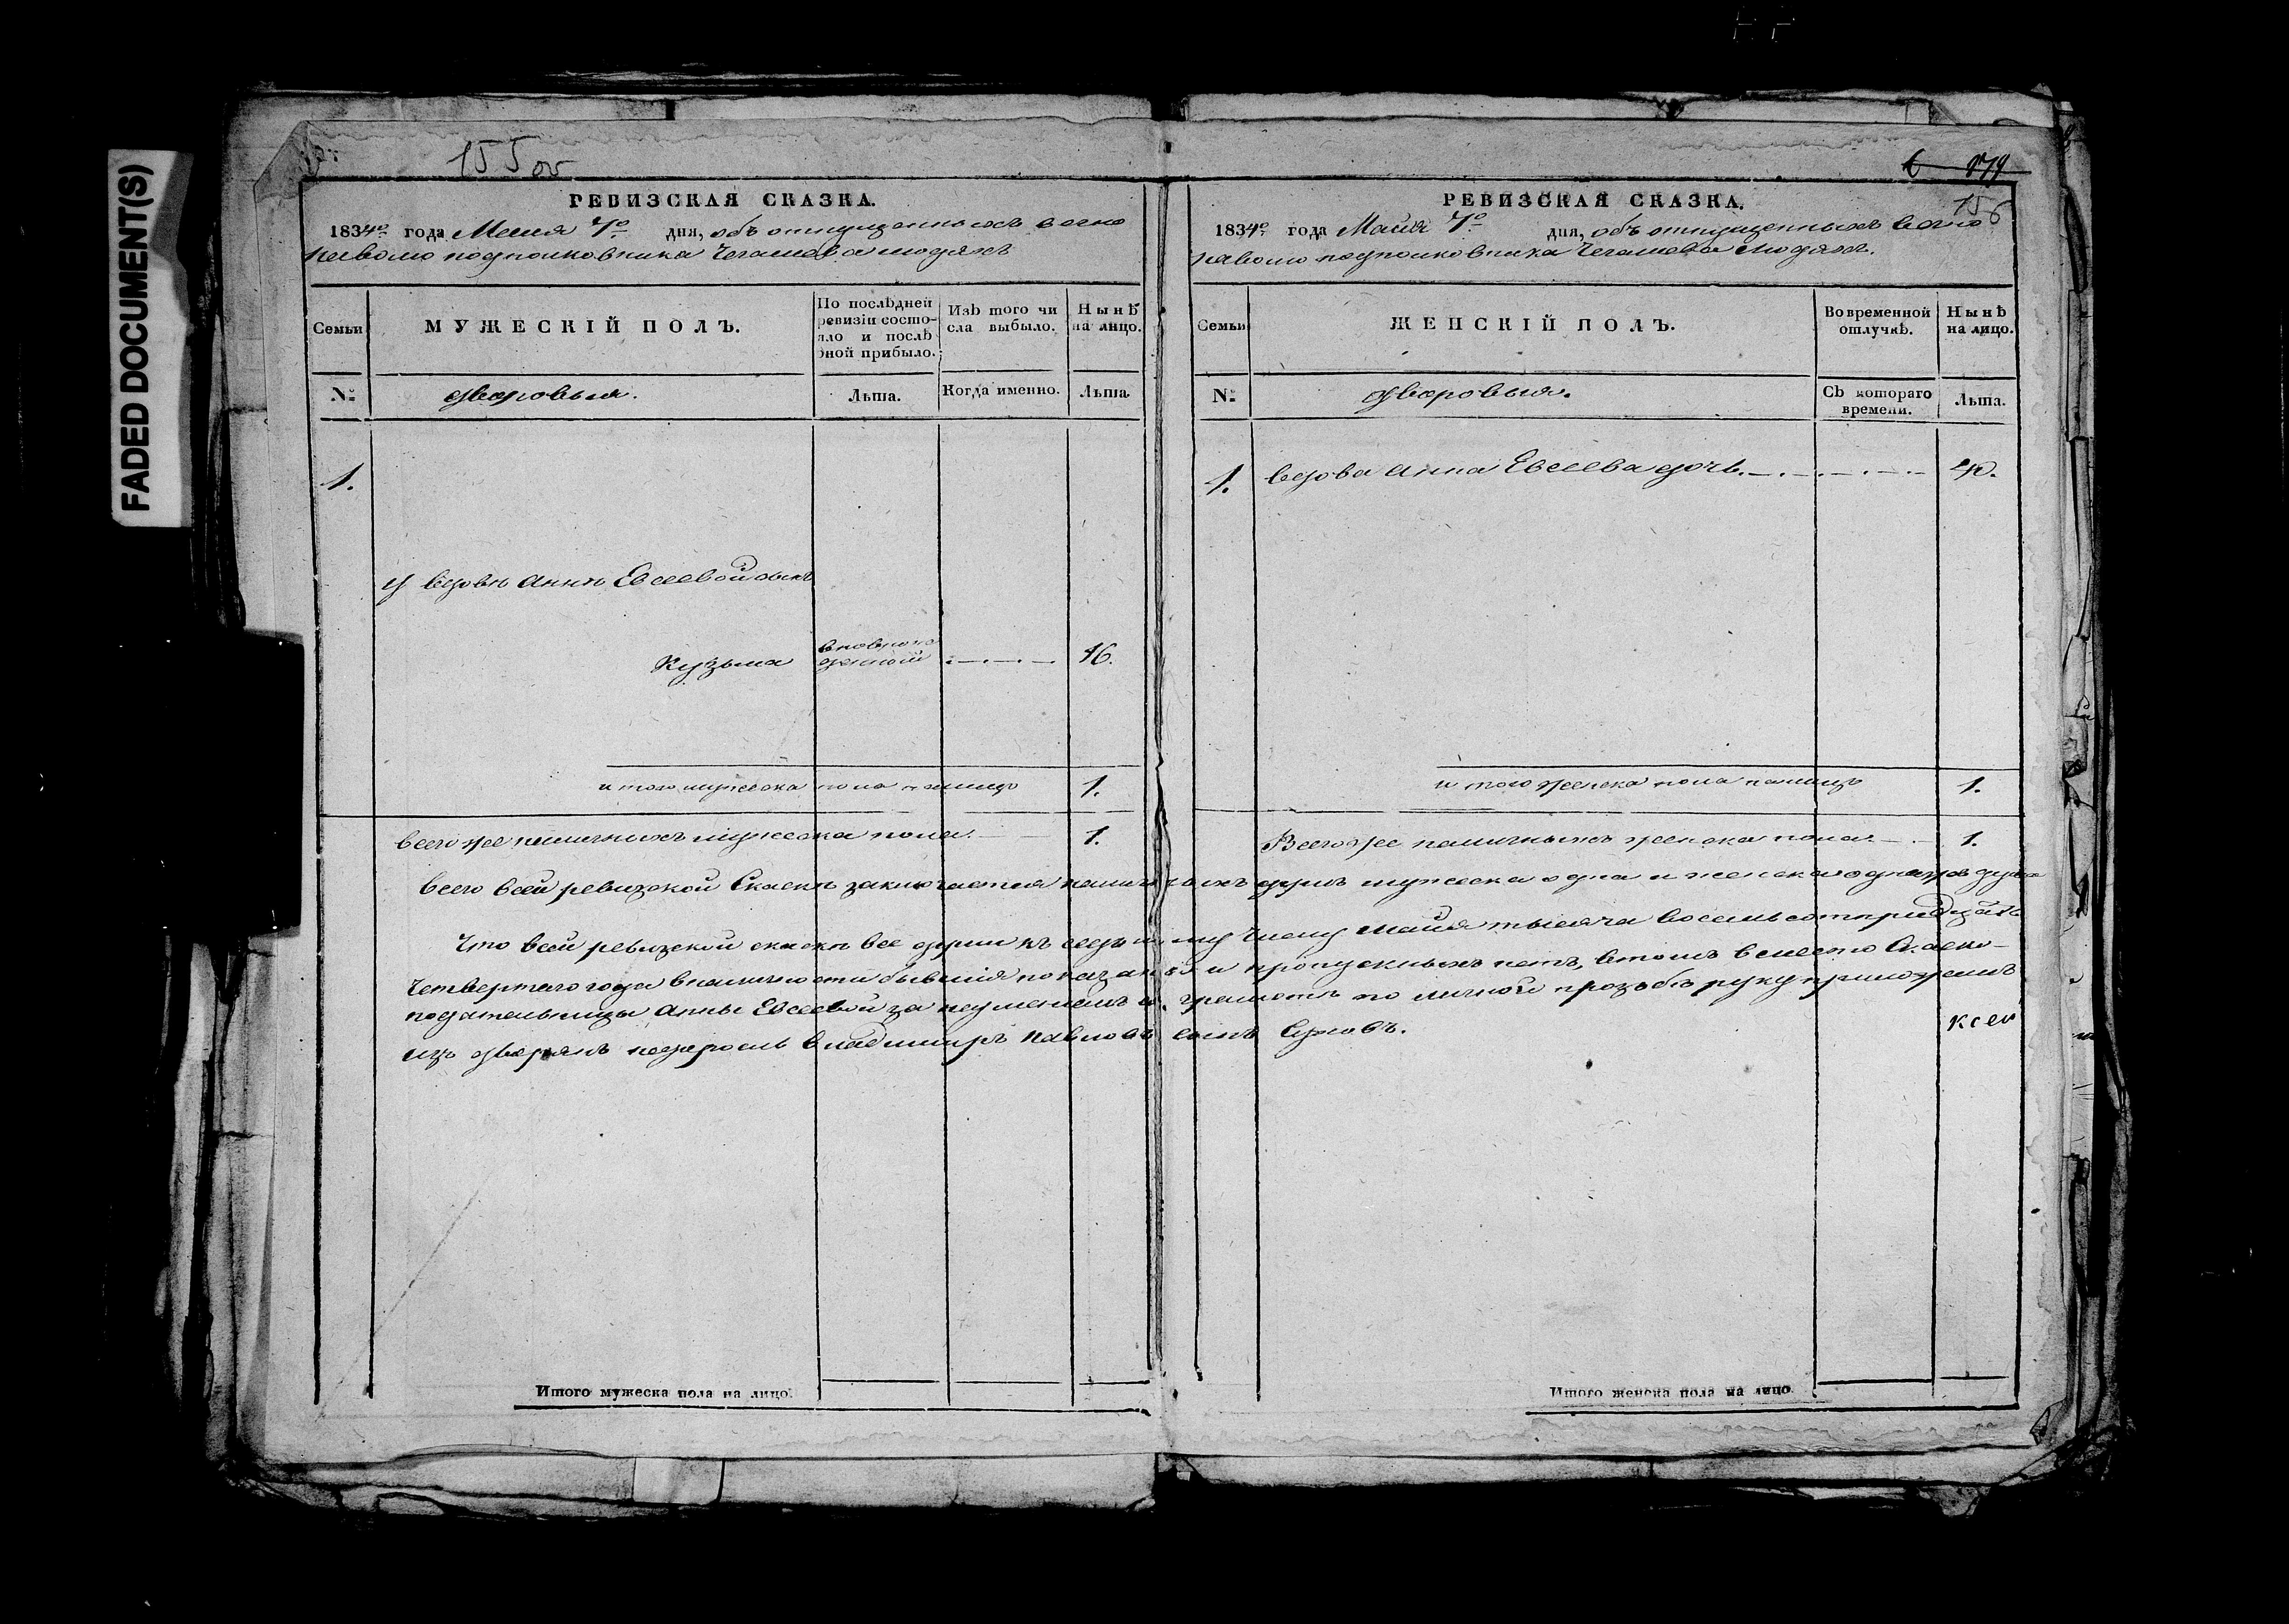 FADED DOCUMENT(S)
155 об
РЕВИЗСКАЯ СКАЗКА.
1834го года Маия 7го дня, объ отпущенныхъ вечно
наволю подполковника Чегашева людяхъ
Семьи
МУЖЕСКІЙ ПОЛЪ.
По послѣдней ревизіи состояло и послѣ оной прибыло.
Изъ того числа выбыло.
Нынѣ на лицо.
№
дворовыя.
Лѣта.
Когда именно.
Лѣта.
1.
У вдовы Анны Евсеевой сынъ
Кузьма вновьрожденной 16.
итого мужеска пола налицо 1.
всего же наличныхъ мужеска пола 1.
179
156
РЕВИЗСКАЯ СКАЗКА.
1834го года Майя 7го дня, объ отпущенныхъ вечно
наволю подполковника Чегашева людяхъ.
Семьи
ЖЕНСКІЙ ПОЛЪ.
Во временной отлучкѣ.
Нынѣ на лицо.
№
дворовыя.
Съ котораго времени.
Лѣта.
1. вдова Анна Евсеева дочь 40.
итого женска пола налицо 1.
Всего же наличныхъ женска пола 1.
Всего всей ревизской Скаски заключается наличныхъ душъ мужеска одна и женска одна душа
Что всей ревизской скаски все души къ седьмому числу Майя тысяча восемь сотъ тридцать
четвертаго года вналичности бывшія показаны и пропускныхъ нетъ, втомъ вместо Скаско-
подательницы Анны Евсеевой за неуменіемъ грамоте по личной прозьбѣ руку приложилъ
изъ дворянъ недоросль Владимиръ Павловъ сынъ
ксей
Итого мужеска пола на лицо.
Итого женска пола на лицо.